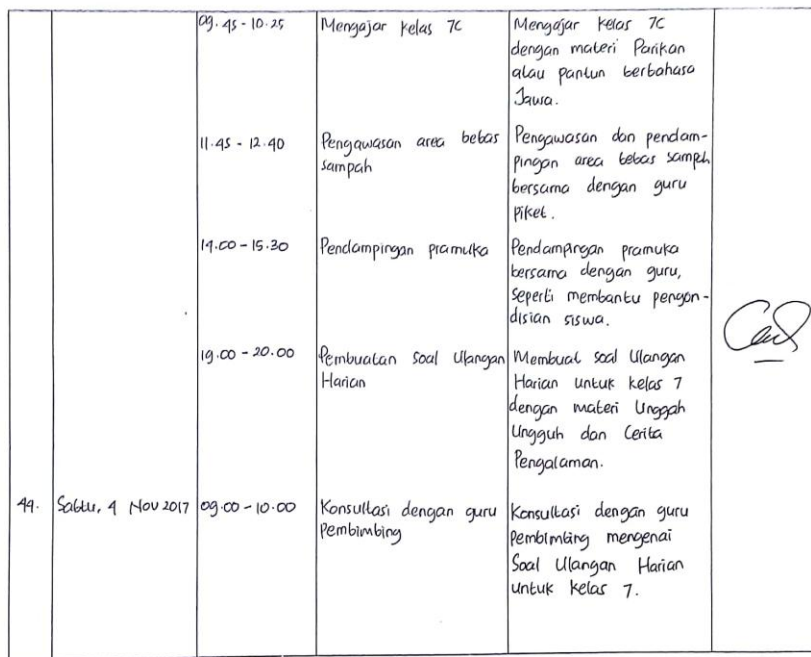 09.45 - 10.25 Mengajar Kelas 7C Mengajar Kelas 7C
dengan materi Parikan
atau pantun berbahasa
Jawa.
11.45 - 12.40 Pengawasan area bebas Pengawasan dan pendam-
sampah pingan area bebas sampah
bersama dengan guru
piket.
14.00 - 15.30 Pendampingan pramuka Pendampingan pramuka
bersama dengan guru,
seperti membantu pengon-
disian siswa.
19.00 - 20.00 Pembuatan Soal Ulangan Membuat Soal Ulangan
Harian Harian untuk kelas 7
dengan materi Unggah
Ungguh dan Cerita
Pengalaman.
44. Sabtu, 4 Nov 2017 09.00 - 10.00 Konsultasi dengan guru Konsultasi dengan guru
Pembimbing Pembimbing mengenai
Soal Ulangan Harian
untuk kelas 7.